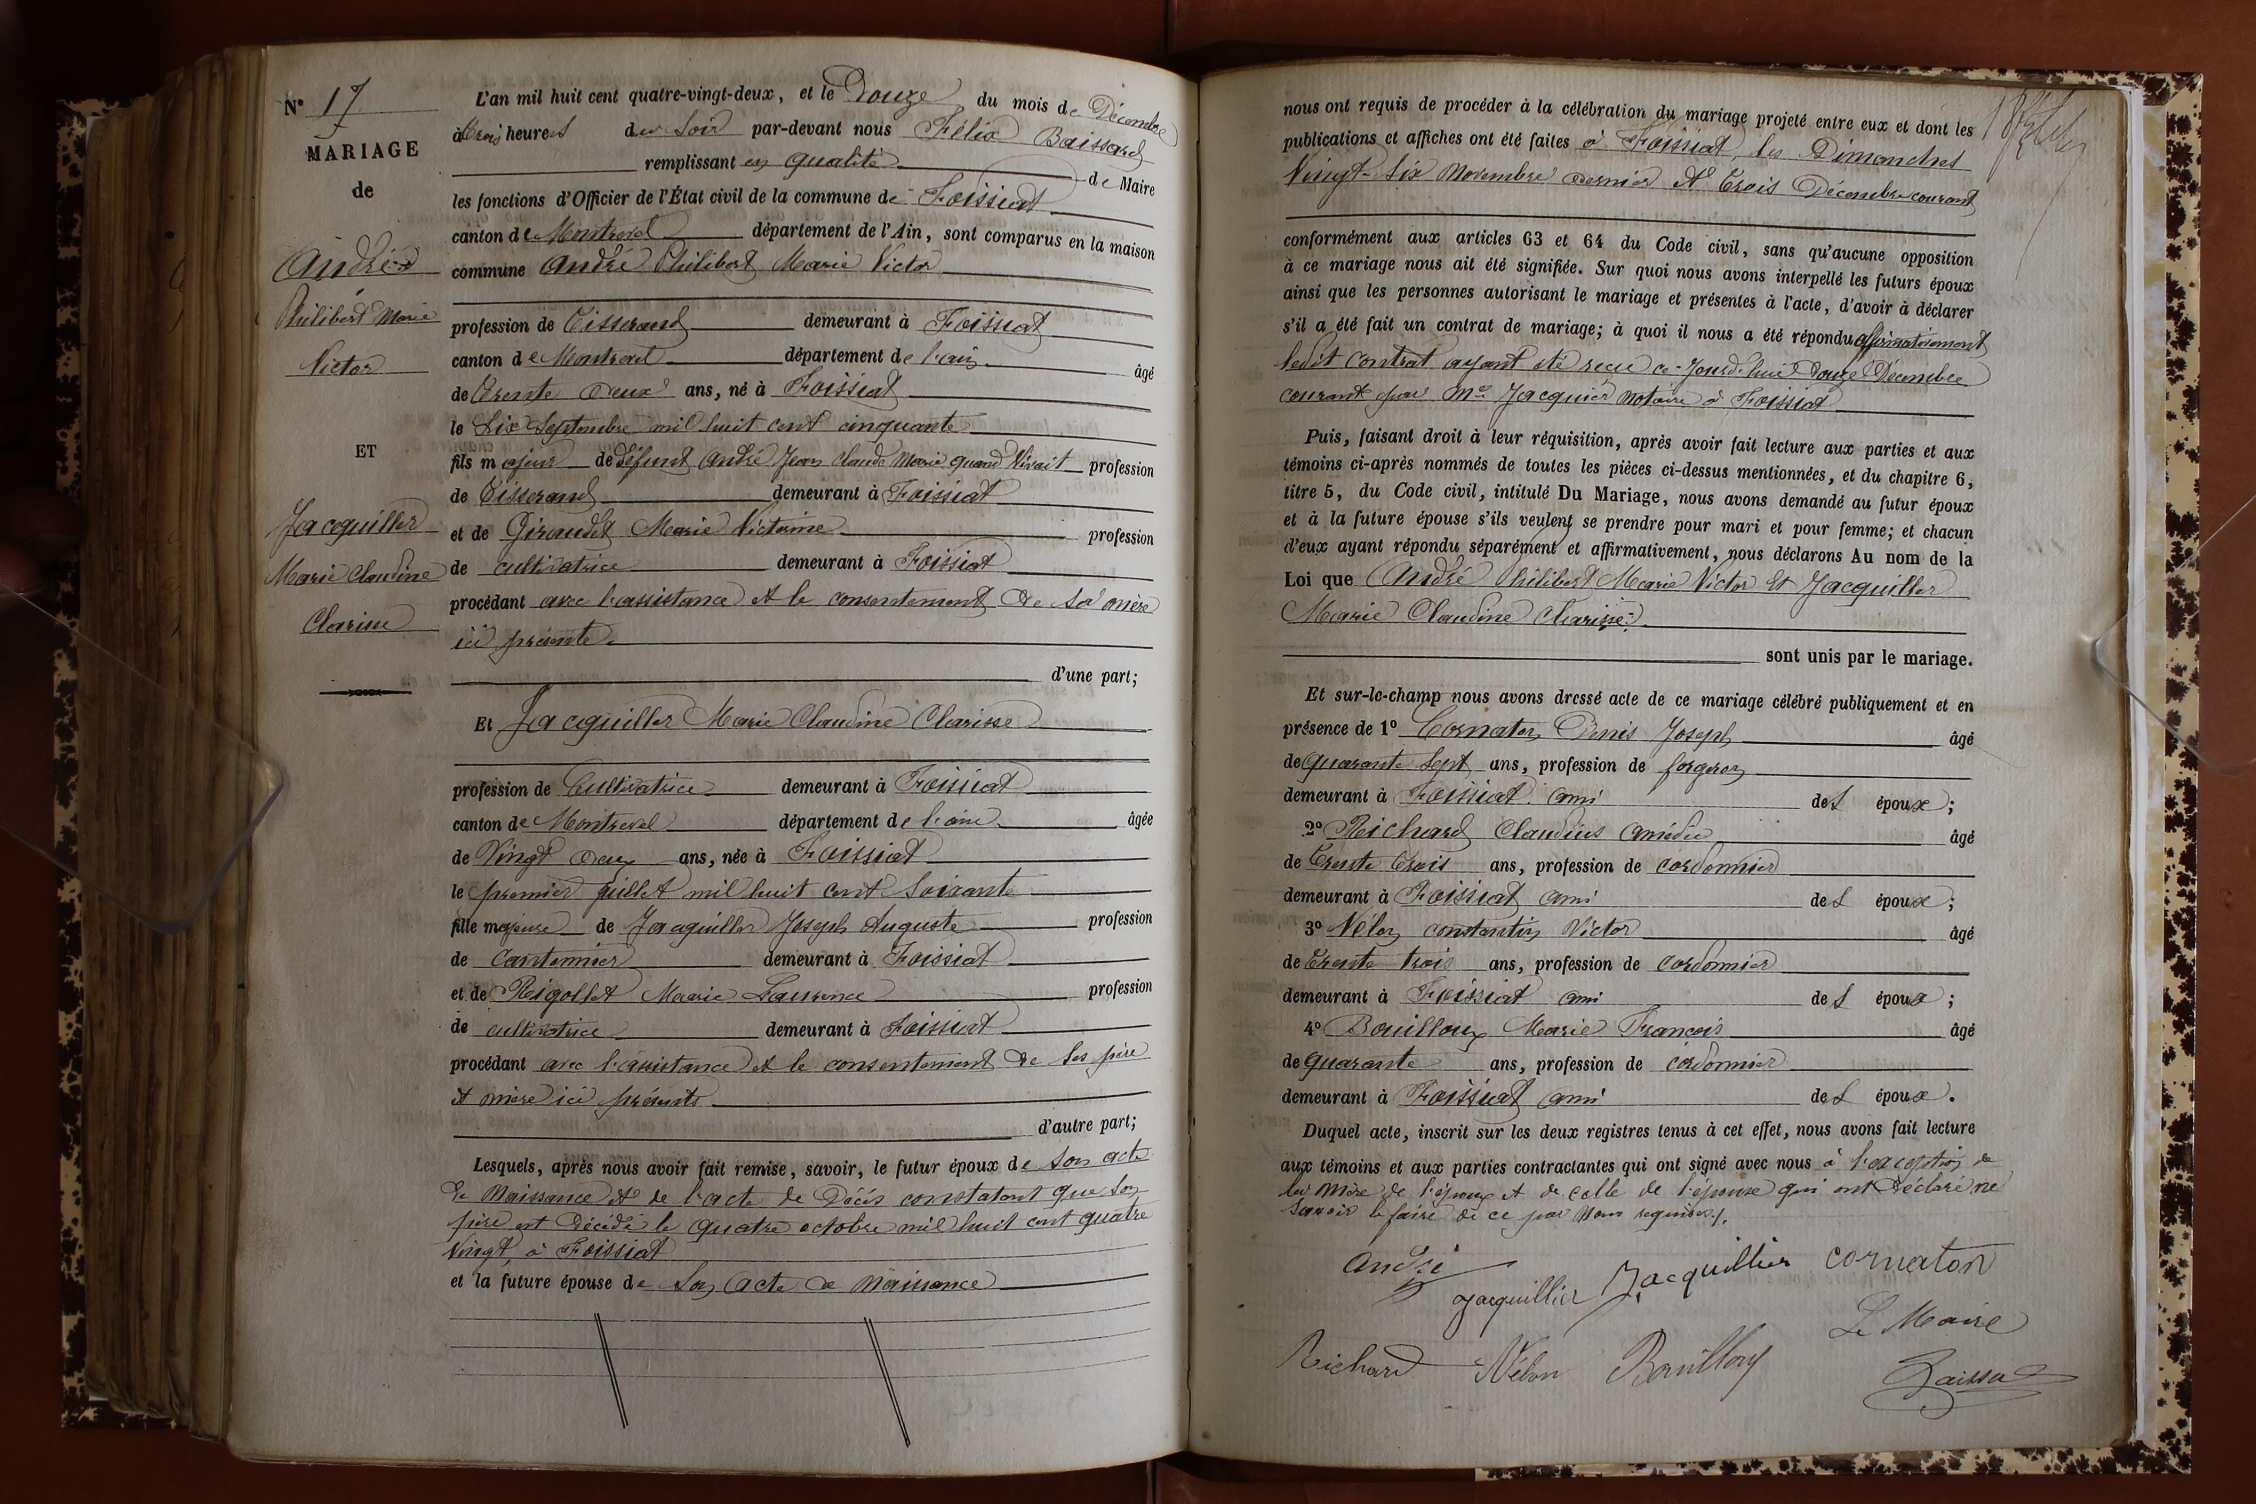 N° 17
MARIAGE
de
André
Philibert Marie
Victor
ET
Jacquiller
Marie Claudine
Clarisse
L'an mil huit cent quatre-vingt-deux, et le Douze du mois de Décembre
à trois heures du Soir par-devant nous Félix Baissard
remplissant en qualité de Maire
les fonctions d'Officier de l'État civil de la commune de Foissiat
canton de Montrevel département de l'Ain, sont comparus en la maison
commune André Philibert Marie Victor
profession de Tisserand demeurant à Foissiat
canton de Montrevel département de l'ain âgé
de Trente Deux ans, né à Foissiat
le Six Septembre mil huit cent cinquante
fils majeur de défunt André Jean Claude Marie quand Vivait profession
de Tisserand demeurant à Foissiat
et de Giraudet Marie Victorine profession
de cultivatrice demeurant à Foissiat
procédant avec l'assistance et le consentement de sa mère
ici présente
d'une part;
Et Jacquiller Marie Claudine Clarisse
profession de Cultivatrice demeurant à Foissiat
canton de Montrevel département de l'ain âgée
de Vingt Deux ans, née à Foissiat
le premier juillet mil huit cent Soixante
fille majeure de Jacquiller Joseph Auguste profession
de Cantonnier demeurant à Foissiat
et de Rigollet Marie Laurence profession
de cultivatrice demeurant à Foissiat
procédant avec l'assistance et le consentement de ses père
et mère ici présents
d'autre part;
Lesquels, après nous avoir fait remise, savoir, le futur époux de son acte
de Naissance et de l'acte de Décès constatant que son
père est décédé le quatre octobre mil huit cent quatre
Vingt, à Foissiat
et la future épouse de son acte de Naissance
nous ont requis de procéder à la célébration du mariage projeté entre eux et dont les
publications et affiches ont été faites à Foissiat, les Dimanches
Vingt-Six Novembre dernier et Trois Décembre courant
conformément aux articles 63 et 64 du Code civil, sans qu'aucune opposition
à ce mariage nous ait été signifiée. Sur quoi nous avons interpellé les futurs époux
ainsi que les personnes autorisant le mariage et présentes à l'acte, d'avoir à déclarer
s'il a été fait un contrat de mariage; à quoi il nous a été répondu affirmativement
ledit contrat ayant été reçu ce-jourd'hui Douze Décembre
courant par Me Jacquier Notaire à Foissiat
Puis, faisant droit à leur réquisition, après avoir fait lecture aux parties et aux
témoins ci-après nommés de toutes les pièces ci-dessus mentionnées, et du chapitre 6,
titre 5, du Code civil, intitulé Du Mariage, nous avons demandé au futur époux
et à la future épouse s'ils veulent se prendre pour mari et pour femme; et chacun
d'eux ayant répondu séparément et affirmativement, nous déclarons Au nom de la
Loi que André Philibert Marie Victor et Jacquiller
Marie Claudine Clarisse
sont unis par le mariage.
Et sur-le-champ nous avons dressé acte de ce mariage célébré publiquement et en
présence de 1° Cornaton Denis Joseph âgé
de quarante Sept ans, profession de forgeron
demeurant à Foissiat ami des époux;
2° Richard Claudius Amédée âgé
de Trente Trois ans, profession de cordonnier
demeurant à Foissiat ami des époux;
3° Vélon constantin Victor âgé
de Trente trois ans, profession de cordonnier
demeurant à Foissiat ami des époux;
4° Bouilloux Marie François âgé
de quarante ans, profession de cordonnier
demeurant à Foissiat ami des époux.
Duquel acte, inscrit sur les deux registres tenus à cet effet, nous avons fait lecture
aux témoins et aux parties contractantes qui ont signé avec nous à l'exception de
la Mère de l'époux et de celle de l'épouse qui ont déclaré ne
savoir le faire de ce par Nous requises.
André
Jacquillier
Jacquillier
cornaton
Le Maire
Richard
Vélon
Bouilloux
Baissard